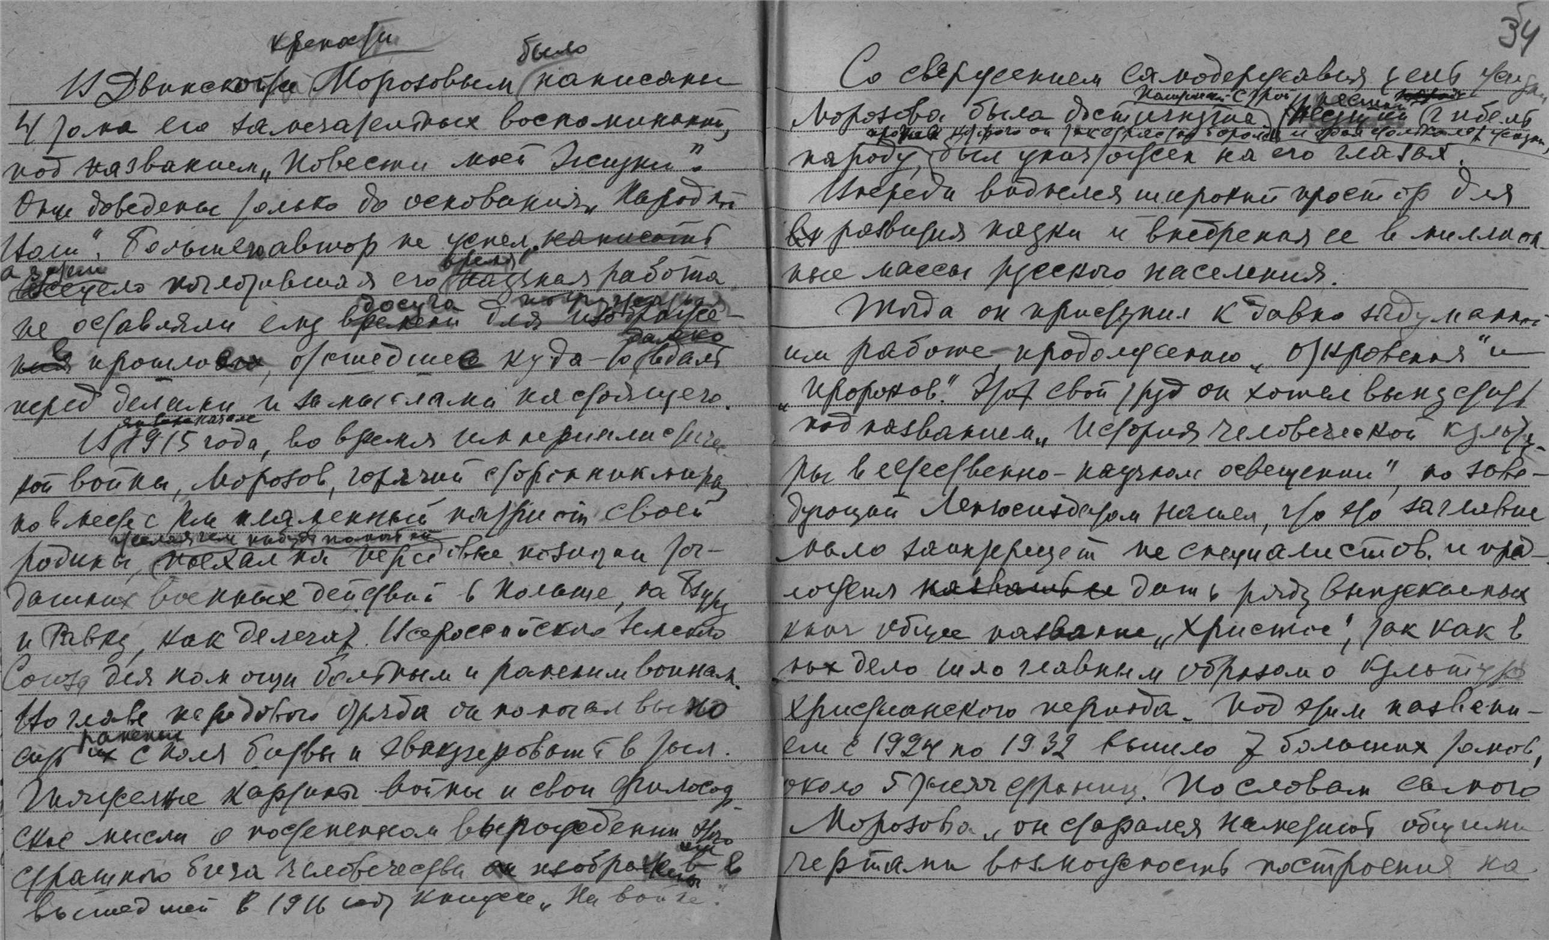 крепости
было
В Двинской Морозовым написаны
4 тома его замечательных воспоминаний,
под названием „Повести моей Жизни".
Они доведены только до основания „Народной
Воли". Больше автор не успел написать
а затем
время
всецело поглотившая его научная работа
досуга
не оставляли ему времени для
далеко
прошлое, отошедшее куда-то вдаль
перед делами и замыслами настоящего.
В 1915 года, во время империалистичес-
кой войны, Морозов, горячий сторонник мира,
но вместе с тем пламенный патриот своей
родины, поехал на передовые позиции то-
дашних военных действий в Польше, на Бзуру
и Равку, как делегат Всероссийского Земского
Союза для помощи больным и раненым воинам.
Во главе передового отряда он помогал выно
раненых
сить их с поля битвы и эвакуировать в тыл.
Тяжелые картины войны и свои философ-
ские мысли о постепенном вырождении этого
страшного бича человечества он изобразил в
вышедшей в 1916 году книжке „На войне".
34
Со свержением самодержавия цель жизни
Морозова была достигнута гибель
народу, был уничтожен на его глазах.
Впереди виднелся широкий простор для
развития науки и внедрения ее в миллион-
ные массы русского населения.
Тогда он приступил к давно задуманной
им работе, продолжению „Откровения" и
„Пророков". Этот свой труд он хотел выпустить
под названием „История человеческой культу-
ры в естественно-научном освещении", но заве-
дующий Ленгосиздатом нашел, что это заглавие
мало заинтересует не специалистов и пред-
ложил дать ряду выпускаемых
книг общее название „Христос", так как в
них дело шло главным образом о культуре
христианского периода. Под этим названи-
ем с 1924 по 1932 вышло 7 больших томов,
около 5 тысяч страниц. По словам самого
Морозова „он старался наметить общими
чертами возможность построения на